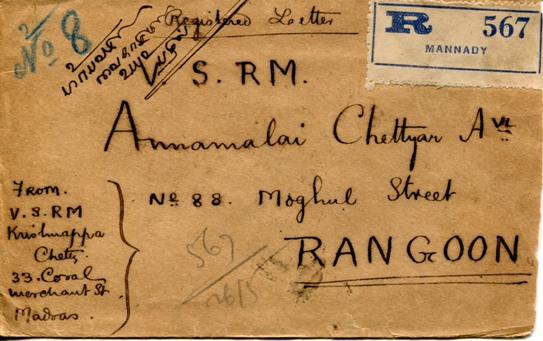 No 8
Registered Letter
R 567
MANNADY
V. S. RM.
Annamalai Chettyar Avl
No 88. Moghul Street
RANGOON
From.
V. S. RM
Krishnappa
Chetty
33. Coral
merchant St.
Madras.
567
26/5